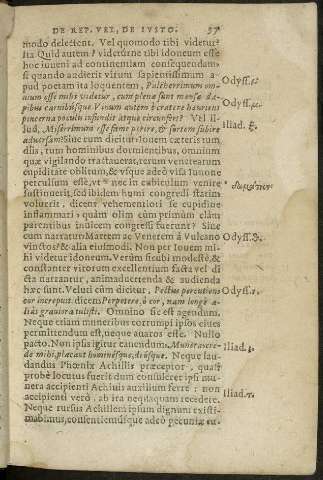 DE REP. VEL DE IVSTO. 57
modo delectent. Vel quomodo tibi videtur?
ita Quid autem? videturne tibi idoneum esse
hoc iuueni ad continentiam consequendam,
si quando audierit virum sapientissimum a-
pud poetam ita loquentem, Pulcherrimum om-
nium esse mihi videtur, cum plena sunt mensæ da-
pibus carnibusque. Vinum autem è cratere hauriens Odyss.
pincerna poculis infundit atque circunfert? Vel il-
lud, Miserrimum esse fame perire, & sortem subire Odyss.
aduersam? Siue cum dicitur Iouem cæteris tum
diis, tum hominibus dormientibus, omnium Iliad. ξ.
quæ vigilando tractauerat, rerum venerearum
cupiditate oblitum, & vsque adeò visa Iunone
perculsum esse, vt * nec in cubiculum venire
sustinuerit, sed ibidem humi congredi statim
voluerit, dicens vehementiori se cupidine
inflammari, quàm olim cùm primùm clàm
parentibus inuicem congressi fuerant? Siue
cum narratur Martem ac Venerem à Vulcano
vinctos? & alia eiusmodi. Non per Iouem mi- Odyss. θ.
hi videtur idoneum. Verùm sicubi modestè, &
constanter virorum excellentium facta vel di
cta narrantur, animaduertenda & audienda
hæc sunt. Veluti cùm dicitur, Pectus percutiens Odyss.
cor increpuit: dicens Perpetere, ô cor, nam longè a-
liàs grauiora tulisti. Omnino sic est agendum.
Neque etiam muneribus corrumpi ipsos ciues
permittendum est, neque auaros esse. Nullo
pacto. Non ipsis igitur canendum, Munera cre-
de mihi, placant hominésque, deúsque. Neque lau- Iliad.
dandus Phœnix Achillis præceptor, quasi
probè locutus fuerit dum consuleret ipsi mu-
nera accipienti Achiuis auxilium ferre: non
accipienti verò, ab ira nequaquam recedere. Iliad.
Neque rursus Achillem ipsum dignum existi-
mabimus, consentiemúsque adeò pecuniæ